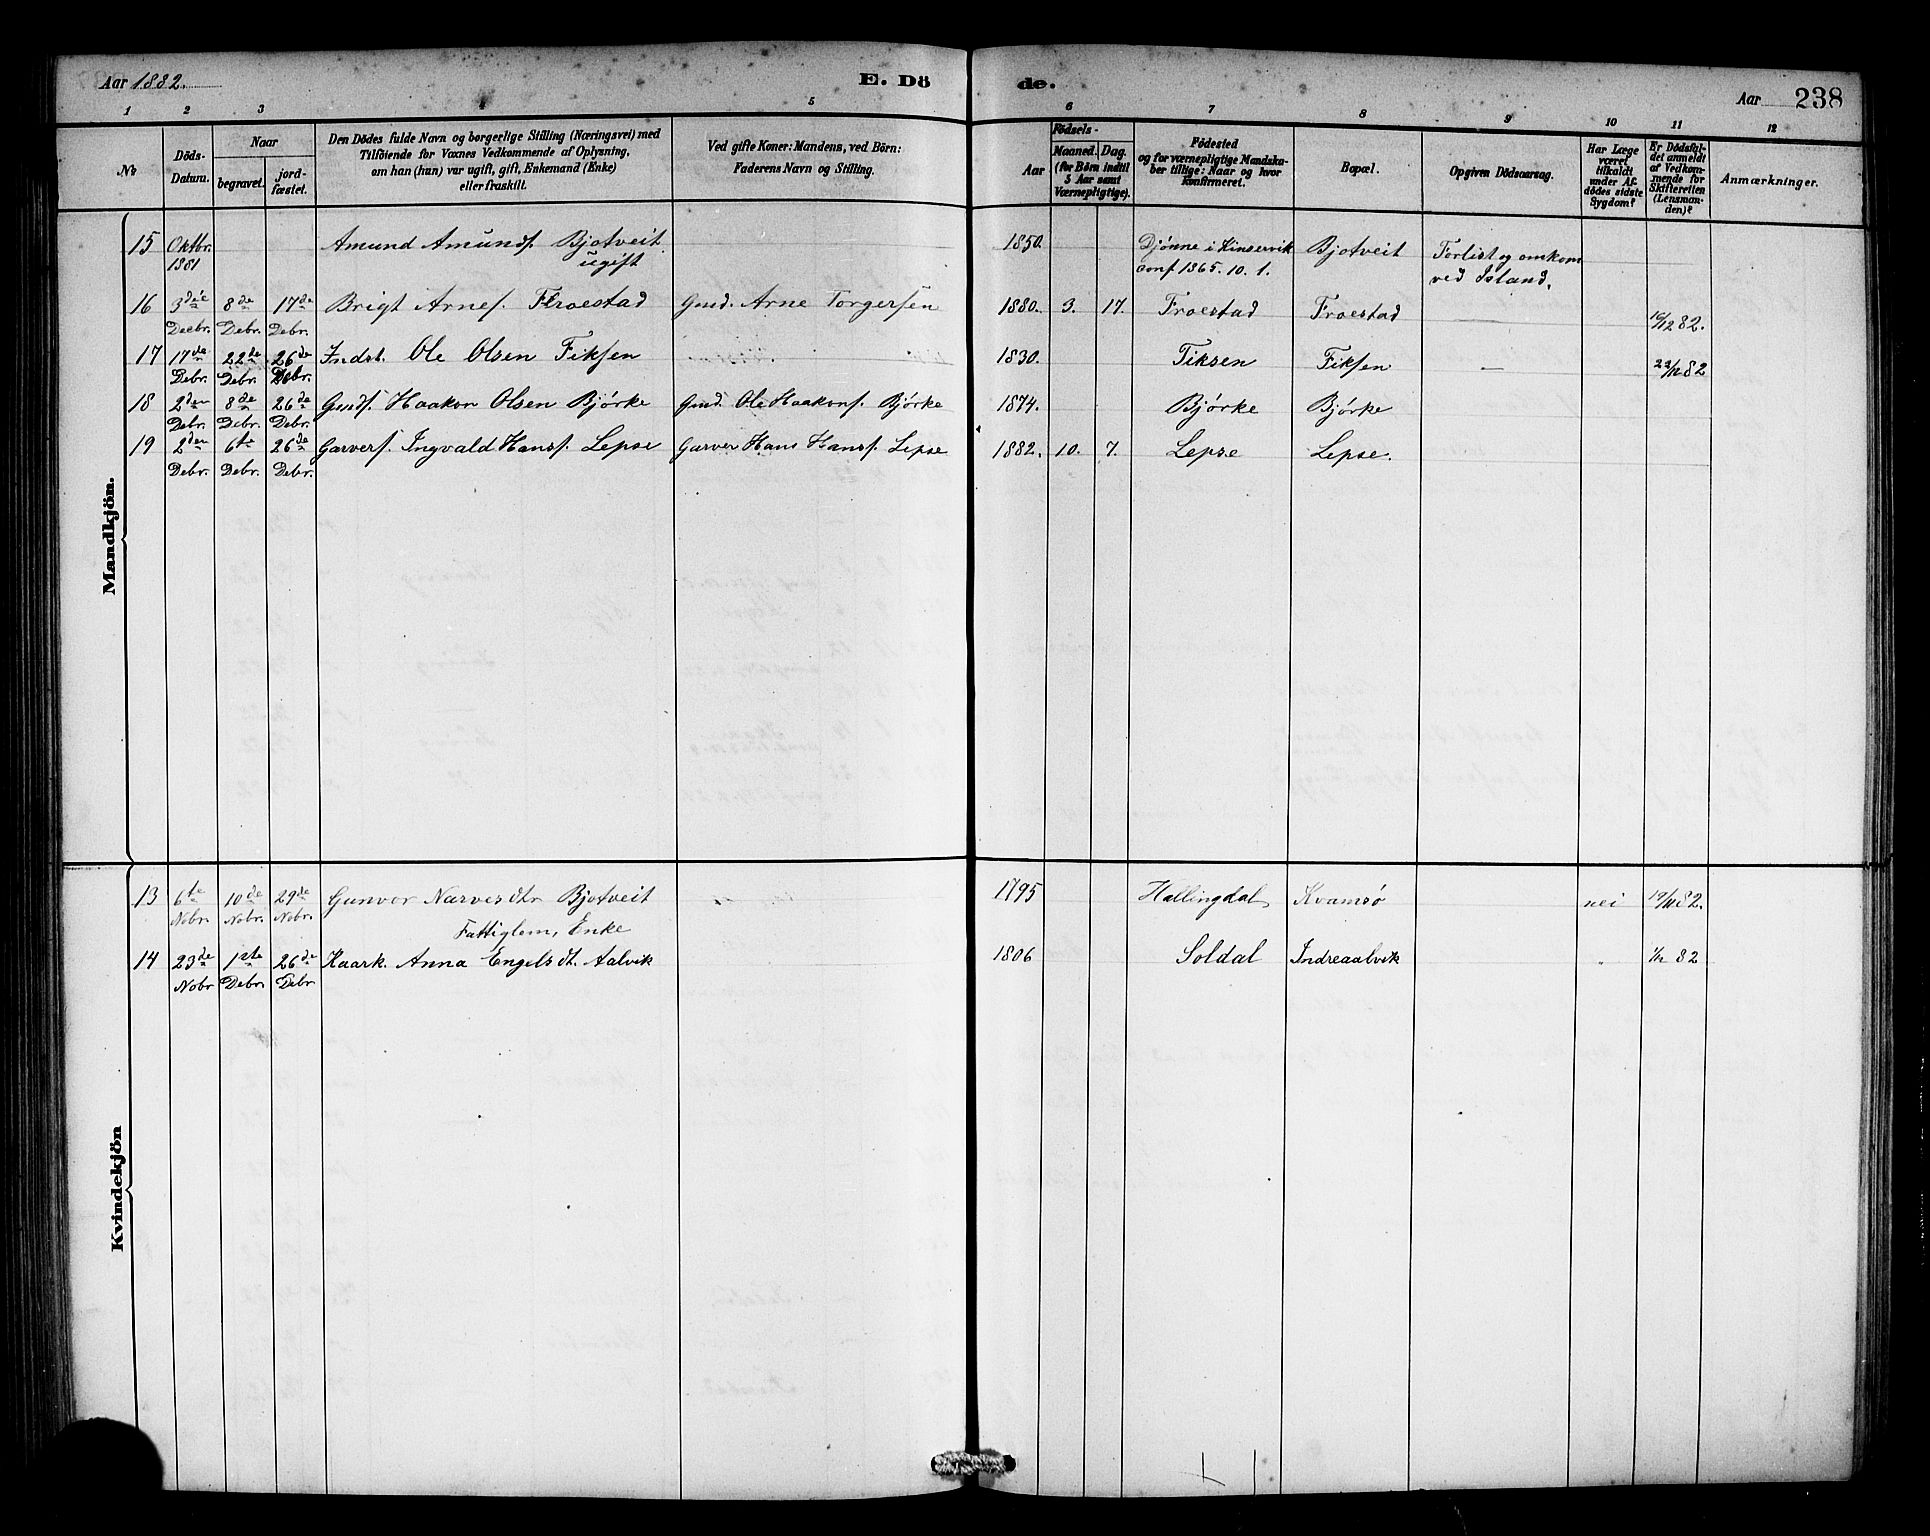 Aar 1882.
E. Dö
de.
Aar 238
1 2 3 4 5 6 7 8 9 10 11 12
No
Döds-Datum.
Naar
begravet.
jord-fæstet.
Den Dödes fulde Navn og borgerlige Stilling (Næringsvei) med
Tilföiende for Voxnes Vedkommende af Oplysning,
om han (hun) var ugift, gift, Enkemand (Enke)
eller fraskilt.
Ved gifte Koner: Mandens, ved Börn:
Faderens Navn og Stilling.
Födsels-
Aar
Maaned. Dag.
(for Börn indtil
5 Aar samt
Værnepligtige).
Födested
og for værnepligtige Mandska-
ber tillige: Naar og hvor
konfirmeret.
Bopæl.
Opgiven Dödsaarsag.
Har Læge
været
tilkaldt
under Af-
dödes sidste
Sygdom?
Er Dödsfal-
det anmeldt
af Vedkom-
mende for
Skifteretten
(Lensman-
den)?
Anmærkninger.
Mandkjön.
15 Oktbr. 1881 Amund Amunds. Bjotveit ugift 1850. Djønne i Kinservik conf 1865. 10. 1. Bjotveit Forlist og omkom ved Island.
16 3die Decbr. 8de Debr. 17de Debr. Brigt Arnes. Froestad Gmd. Arne Torgersen 1880. 3. 17. Froestad Froestad — 10/12 82.
17 17de Debr. 22de Debr. 26de Debr. Indst. Ole Olsen Fiksen 1830. Fiksen Fiksen — 22/12 82
18 2den Debr. 8de Debr. 26de Debr. Gmds. Haakon Olsen Bjørke Gmd. Ole Haakons. Bjørke 1874. Bjørke Bjørke
19 2den Debr. 6te Debr. 26de Debr. Garvers. Ingvald Hanss. Lepse Garver Hans Hanss. Lepse 1882. 10. 7. Lepse Lepse.
Kvindekjön
13 6te Nobr. 10de Nobr. 29de Nobr. Gunvor Narvesdtr Bjotveit Fattiglem, Enke 1795 Hallingdal Kvamsø nei 19/11 82.
14 23de Nobr 1ste Debr. 26de Debr Kaark. Anna Engelsdt. Aalvik 1806 Soldal Indreaalvik " 1/12 82